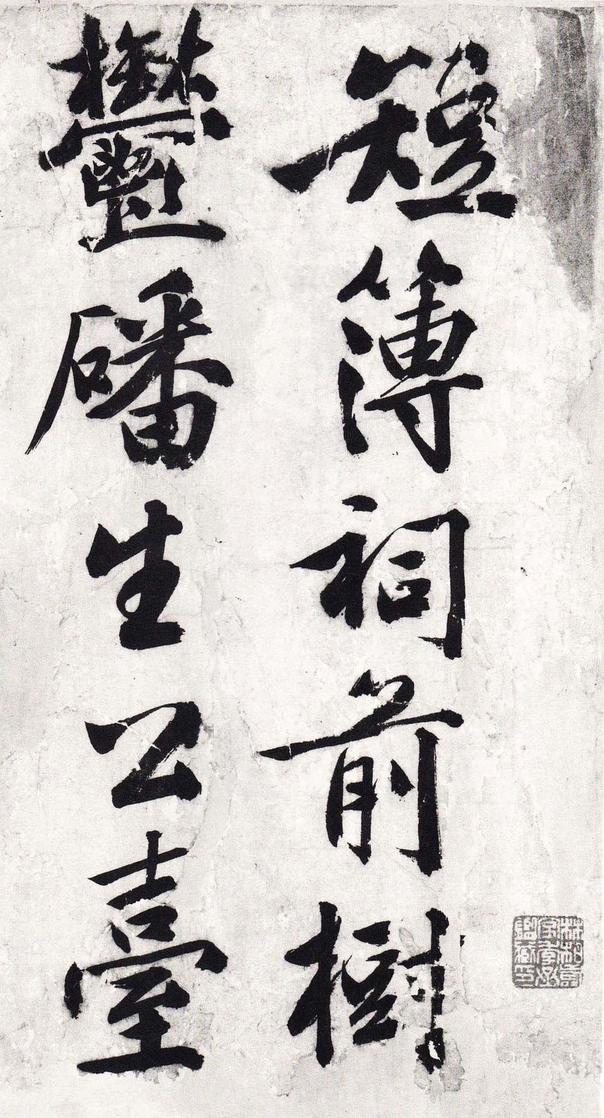 短簿祠前樹
鬱磻生公臺